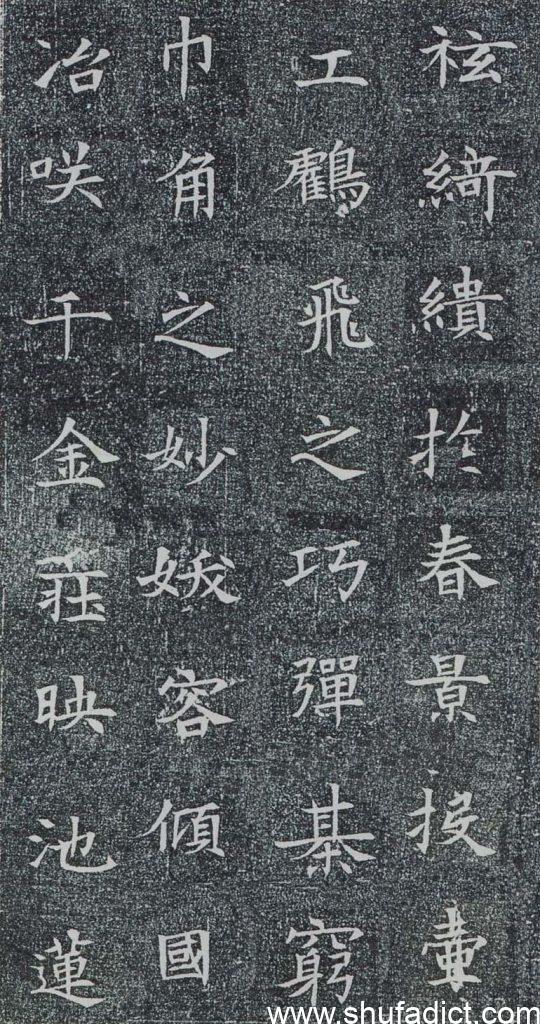 袨綺繢於春景投壺
工鶴飛之巧彈棊窮
巾角之妙娥容傾國
冶咲千金莊映池蓮
www.shufadict.com